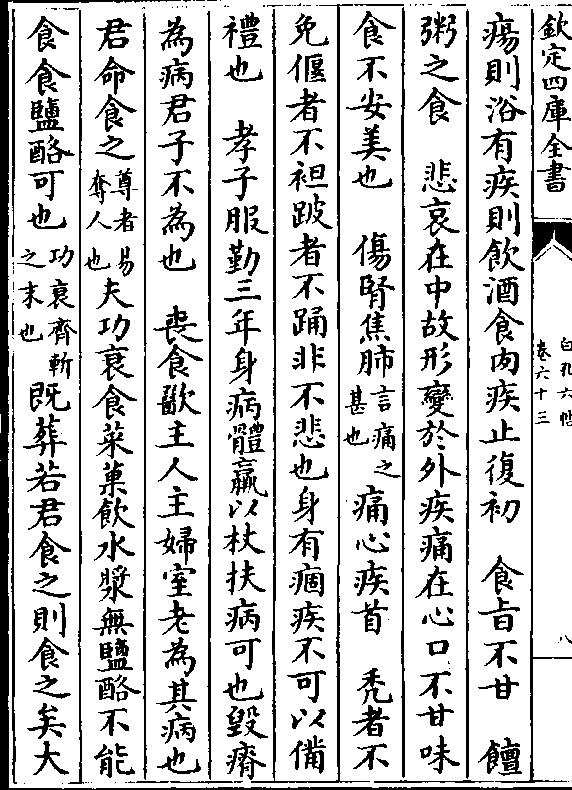 欽定四庫全書
白孔六帖
卷六十三
八
瘍則浴有疾則飲酒食肉疾止復初　食旨不甘　饘
粥之食　悲哀在中故形變於外疾痛在心口不甘味
食不安美也　傷腎焦肺言痛之甚也痛心疾首　禿者不
免傴者不袒跛者不踊非不悲也身有痼疾不可以備
禮也　孝子服勤三年身病體羸以杖扶病可也毀瘠
為病君子不為也　喪食歠主人主婦室老為其病也
君命食之尊者易奪人也夫功衰食菜菓飲水漿無鹽酪不能
食食鹽酪可也功衰齊斬之末也既葬若君食之則食之矣大